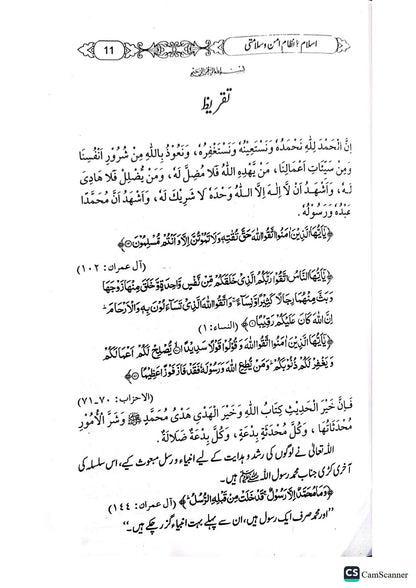 اسلام؛ نظام امن و سلامتی
11
بسم اللہ الرحمن الرحیم
تقریظ
إِنَّ الْحَمْدَ لِلّٰهِ نَحْمَدُهٗ وَنَسْتَعِيْنُهٗ وَنَسْتَغْفِرُهٗ، وَنَعُوْذُ بِاللّٰهِ مِنْ شُرُوْرِ اَنْفُسِنَا
وَمِنْ سَيِّئَاتِ اَعْمَالِنَا، مَنْ يَّهْدِهِ اللّٰهُ فَلَا مُضِلَّ لَهٗ، وَمَنْ يُّضْلِلْ فَلَا هَادِيَ
لَـهٗ، وَاَشْهَدُ اَنْ لَّا اِلٰـهَ اِلَّا اللّٰهُ وَحْدَهٗ لَا شَرِيْكَ لَهٗ، وَاَشْهَدُ اَنَّ مُحَمَّدًا
عَبْدُهٗ وَرَسُوْلُهٗ.
﴿يٰۤاَيُّهَا الَّذِيْنَ اٰمَنُوا اتَّقُوا اللّٰهَ حَقَّ تُقٰتِهٖ وَلَا تَمُوْتُنَّ اِلَّا وَاَنْتُمْ مُّسْلِمُوْنَ﴾
(آل عمران: ۱۰۲)
﴿يٰۤاَيُّهَا النَّاسُ اتَّقُوْا رَبَّكُمُ الَّذِيْ خَلَقَكُمْ مِّنْ نَّفْسٍ وَّاحِدَةٍ وَّخَلَقَ مِنْهَا زَوْجَهَا
وَبَثَّ مِنْهُمَا رِجَالًا كَثِيْرًا وَّنِسَآءً ۚ وَاتَّقُوا اللّٰهَ الَّذِيْ تَسَآءَلُوْنَ بِهٖ وَالْاَرْحَامَ ؕ
اِنَّ اللّٰهَ كَانَ عَلَيْكُمْ رَقِيْبًا﴾ (النساء: ۱)
﴿يٰۤاَيُّهَا الَّذِيْنَ اٰمَنُوا اتَّقُوا اللّٰهَ وَقُوْلُوْا قَوْلًا سَدِيْدًا يُّصْلِحْ لَكُمْ اَعْمَالَكُمْ
وَيَغْفِرْ لَكُمْ ذُنُوْبَكُمْ ؕ وَمَنْ يُّطِعِ اللّٰهَ وَرَسُوْلَهٗ فَقَدْ فَازَ فَوْزًا عَظِيْمًا﴾
(الاحزاب: ۷۰-۷۱)
فَـاِنَّ خَيْرَ الْحَدِيْثِ كِتَابُ اللّٰهِ وَخَيْرَ الْهَدْيِ هَدْيُ مُحَمَّدٍ ﷺ وَشَرَّ الْاُمُوْرِ
مُحْدَثَاتُهَا، وَكُلَّ مُحْدَثَةٍ بِدْعَةٌ، وَكُلَّ بِدْعَةٍ ضَلَالَةٌ.
اللہ تعالیٰ نے لوگوں کی رشد و ہدایت کے لیے انبیاء و رسل مبعوث کیے، اس سلسلہ کی
آخری کڑی جناب محمد رسول اللہ ﷺ ہیں۔
﴿وَمَا مُحَمَّدٌ اِلَّا رَسُوْلٌ ۚ قَدْ خَلَتْ مِنْ قَبْلِهِ الرُّسُلُ ؕ﴾ (آل عمران: ۱۴۴)
”اور محمد صرف ایک رسول ہیں، ان سے پہلے بہت انبیاء گزر چکے ہیں۔“
CS CamScanner